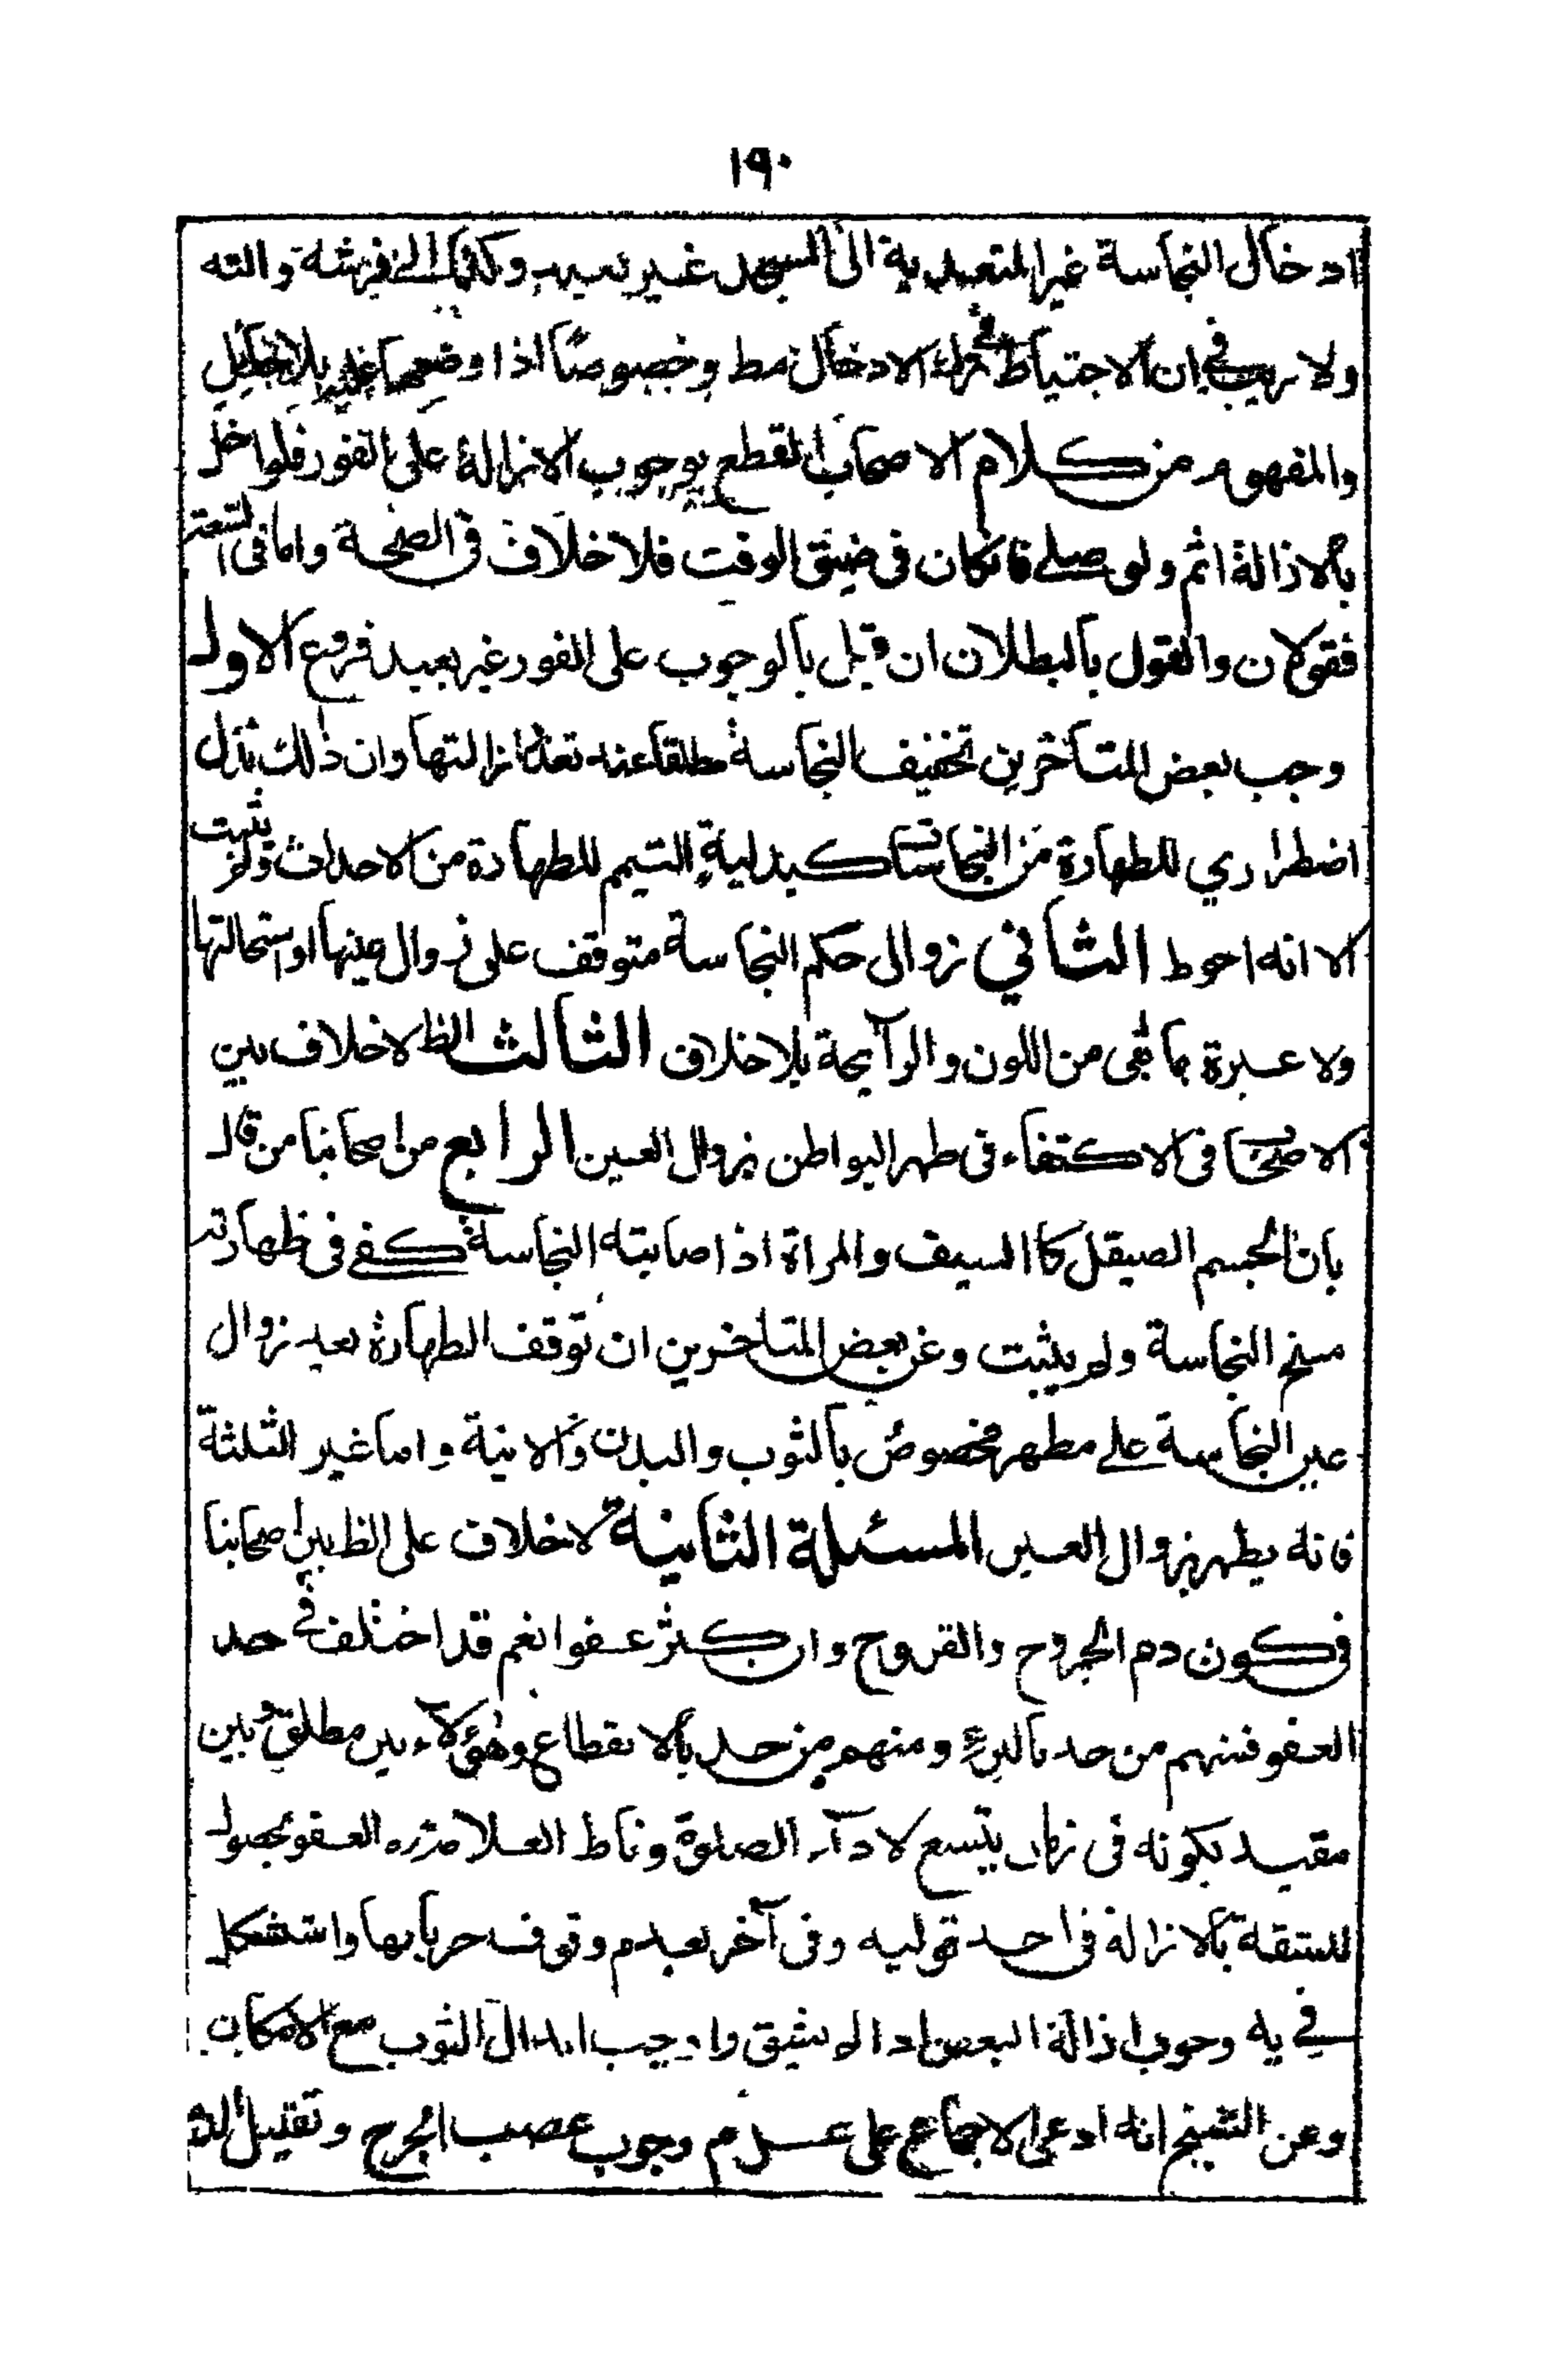 ١٩٠
ادخال النجاسة غير المتعدية الى المسجد غير بعيد وكذا الى فرشة والته
ولا ريب في ان الاحتياط ترك الادخال مط وخصوصًا اذا وضعها عليه بلا حايل
والمفهوم من كلام الاصحاب القطع بوجوب الازالة على الفور فلو اخل
بالازالة اثم ولو صلى فانكان فى ضيق الوقت فلا خلاف فى الصحة واما فى السعة
فقولان والقول بالبطلان ان قيل بالوجوب على الفور غير بعيد فروع الاول
وجب بعض المتأخرين تخفيف النجاسة مطلقا عند تعذر ازالتها وان ذلك بدل
اضطراري للطهارة من النجاسات كبدلية التيمم للطهارة من الاحداث ولم يثبت
الا انه احوط الثاني زوال حكم النجاسة متوقف على زوال عينها او استحالتها
ولا عبرة بما بقى من اللون والرآيحة بلا خلاف الثالث الظ لا خلاف بين
الاصحاب فى الاكتفاء فى طهر البواطن بزوال العين الرابع من اصحابنا من قال
بان الجسم الصيقل كا السيف والمراة اذا صابته النجاسة كفى فى طهارته
مسح النجاسة ولم يثبت وعن بعض المتاخرين ان توقف الطهارة بعد زوال
عين النجاسة على مطهر مخصوص بالثوب والبدن والانية واما غير الثلثة
فانه يطهر بزوال العين المسئلة الثانية لا خلاف على الظ بين اصحابنا
فى كون دم الجروح والقروح وان كثر عفوا نعم قد اختلف في حد
العفو فمنهم من حد بالبرء ومنهم من حد بالانقطاع وهؤلآء بين مطلق وبين
مقيد بكونه فى زمان يتسع لادآء الصلوة وناط العلامة ره العفو بحصول
المشقة بالازالة فى احد قوليه وفى آخر بعدم وقوف جريانها واستشكل
في يه وجوب ازالة البعض اذا لم يشق واوجب ابدال الثوب مع الامكان
وعن الشيخ انه ادعى الاجماع على عدم وجوب عصب الجرح وتقليل الدم